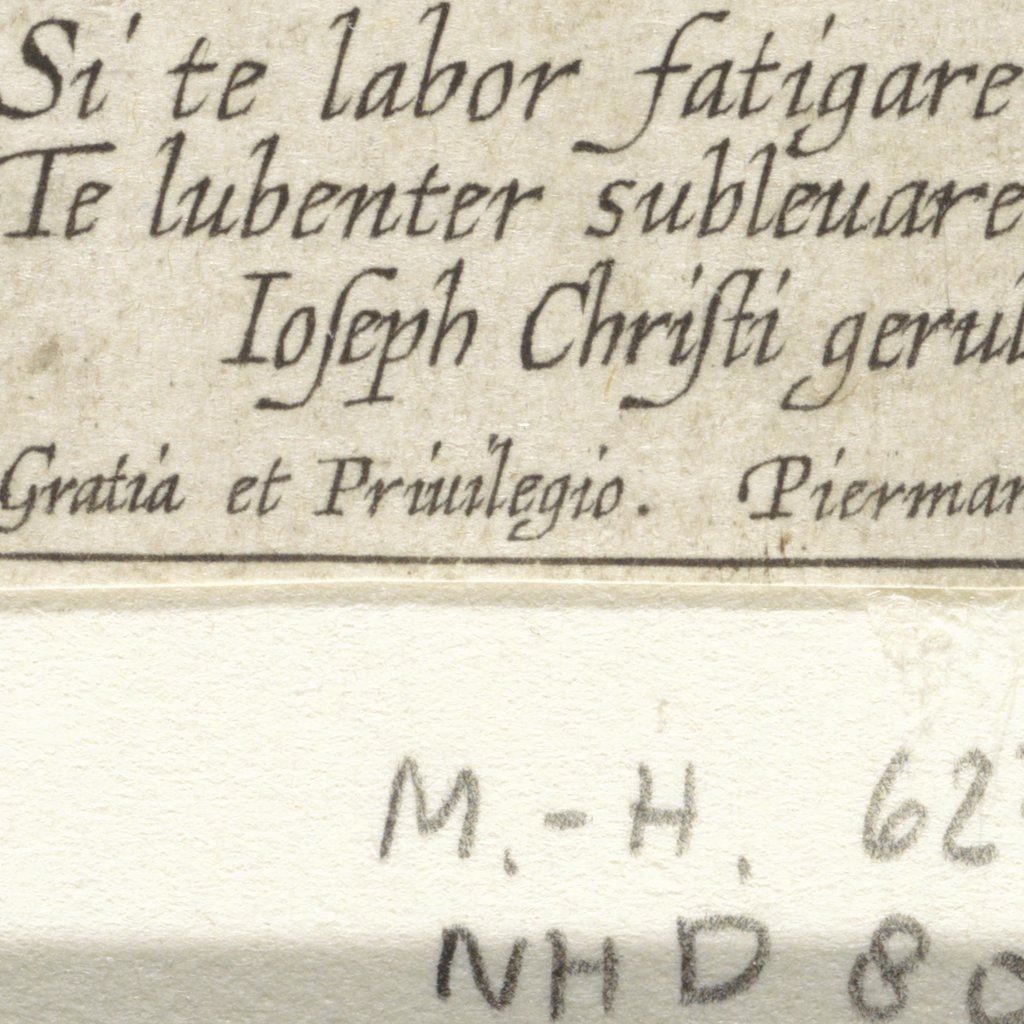 Si te labor fatigare
Te lubenter subleuare
Ioſeph Chriſti
Gratia et Priuilegio.
M.-H. 62
NHD 8